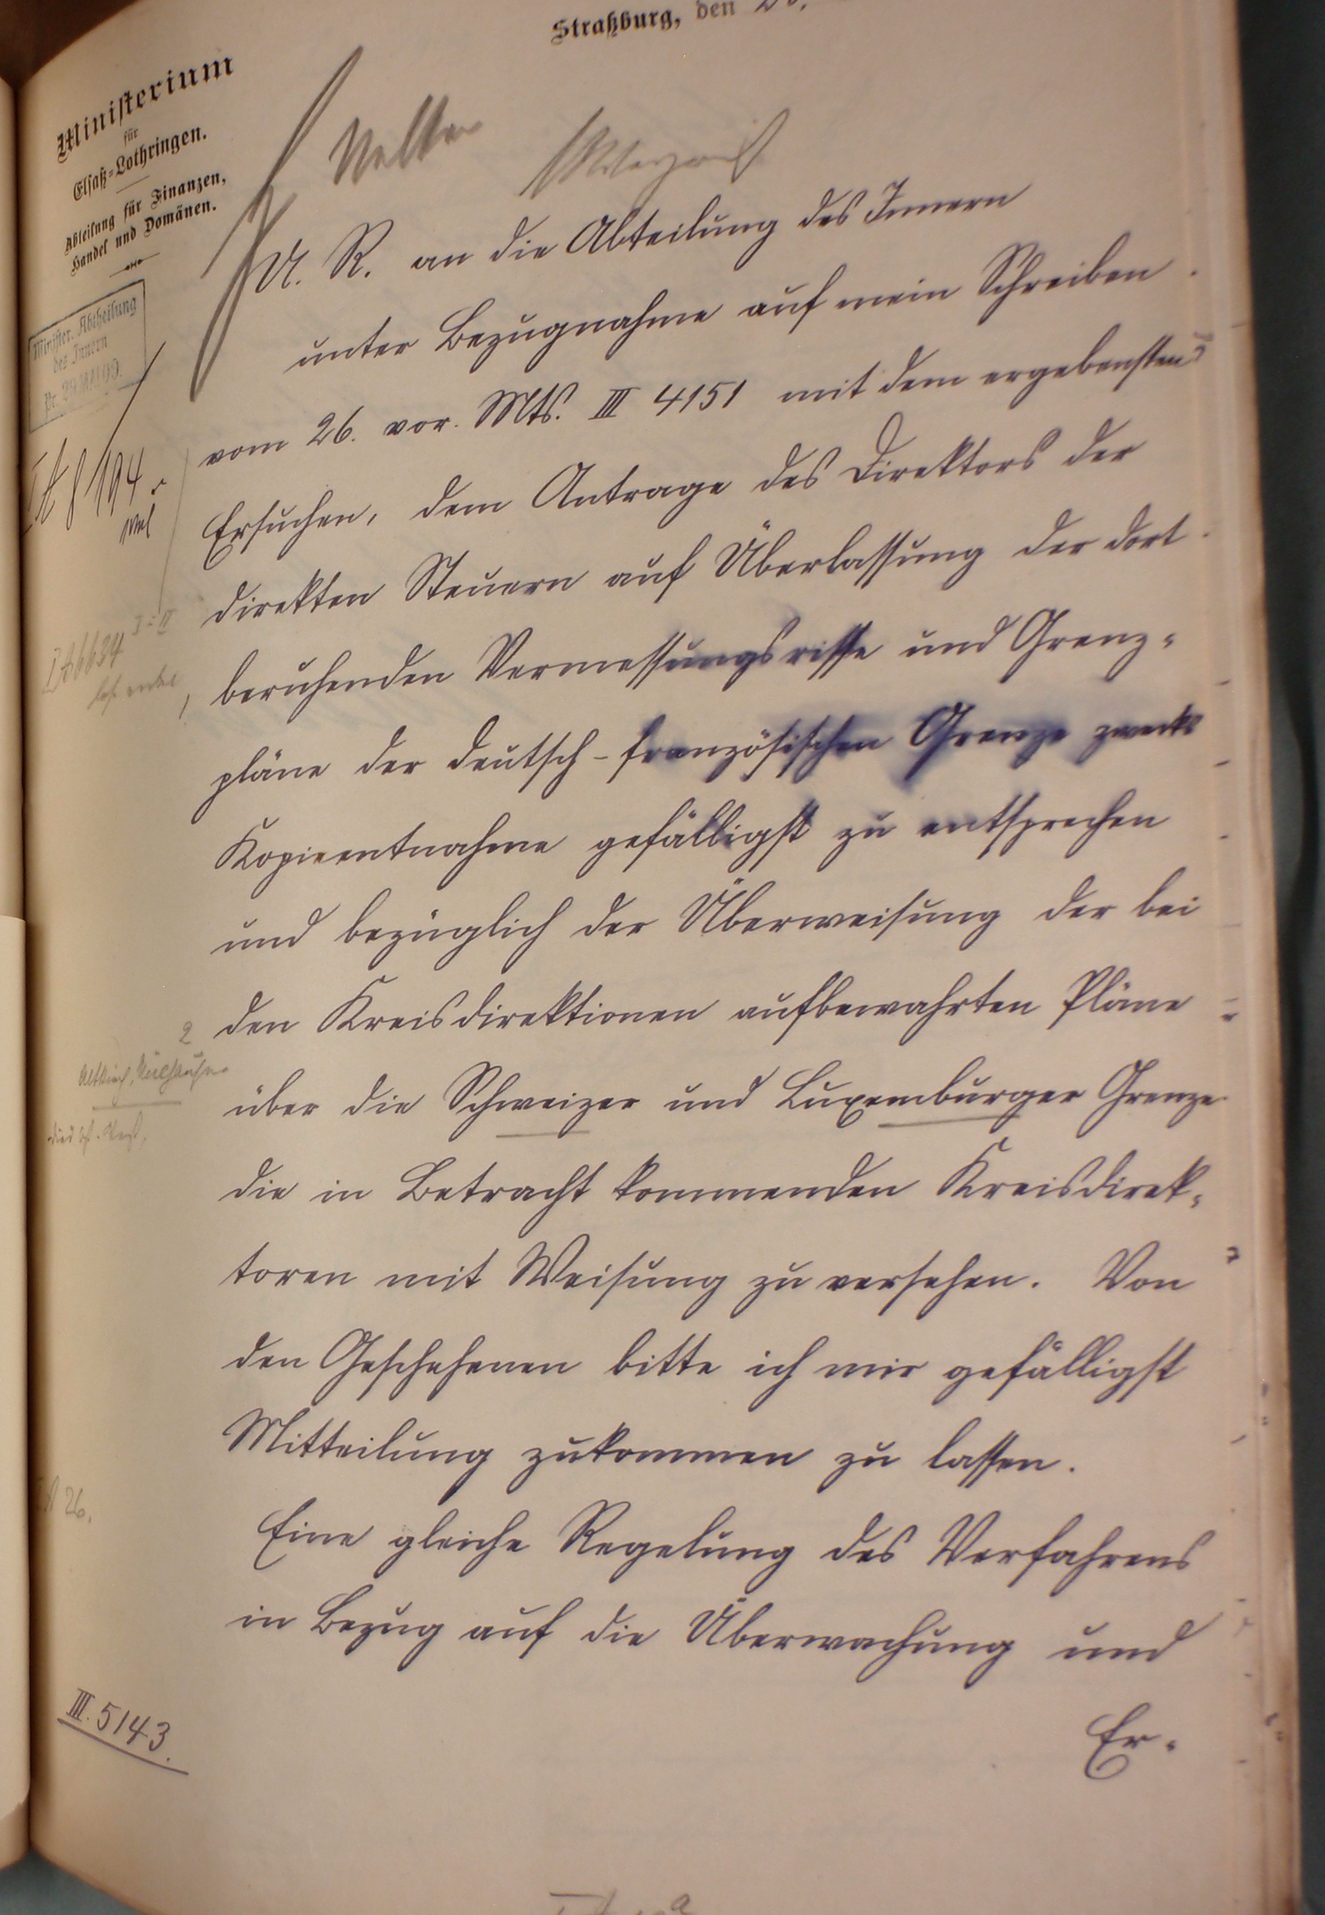 Straßburg, den
Ministerium
für
Elsaß-Lothringen.
Abteilung für Finanzen,
Handel und Domänen.
Minister. Abtheilung
des Innern
Pr. 29. MAI 09.
U. R. an die Abteilung des Innern
unter Bezugnahme auf mein Schreiben
vom 26. vor. Mts. III 4151 mit dem ergebensten
Ersuchen, dem Antrage des Direktors der
direkten Steuern auf Überlassung der dort
beruhenden Vermessungsrisse und Grenz-
pläne der deutsch-französischen Grenze zwecks
Kopieentnahme gefälligst zu entsprechen
und bezüglich der Überweisung der bei
den Kreisdirektionen aufbewahrten Pläne
über die Schweizer und Luxemburger Grenze
die in Betracht kommenden Kreisdirek-
toren mit Weisung zu versehen. Von
den Geschehenen bitte ich mir gefälligst
Mitteilung zukommen zu lassen.
Eine gleiche Regelung des Verfahrens
in Bezug auf die Überwachung und
Er-
III. 5143.